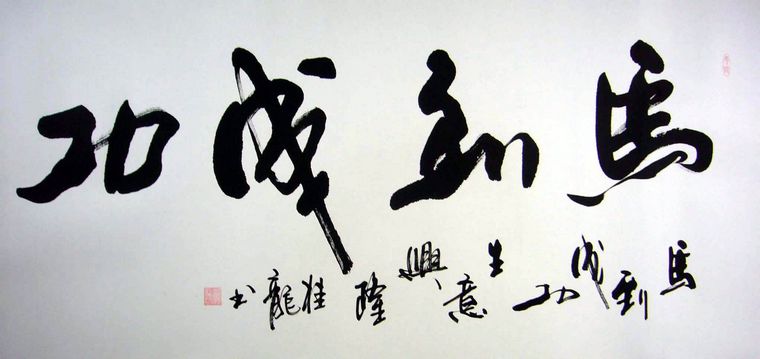 馬到成功
馬到成功 生意興隆 桂龍书